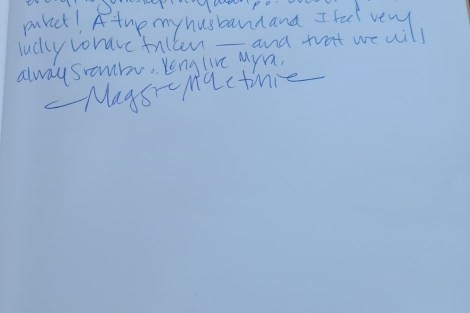 pocket! A trip my husband and I feel very
lucky to have taken — and that we will
always remember. Long live Myra.
Maggie